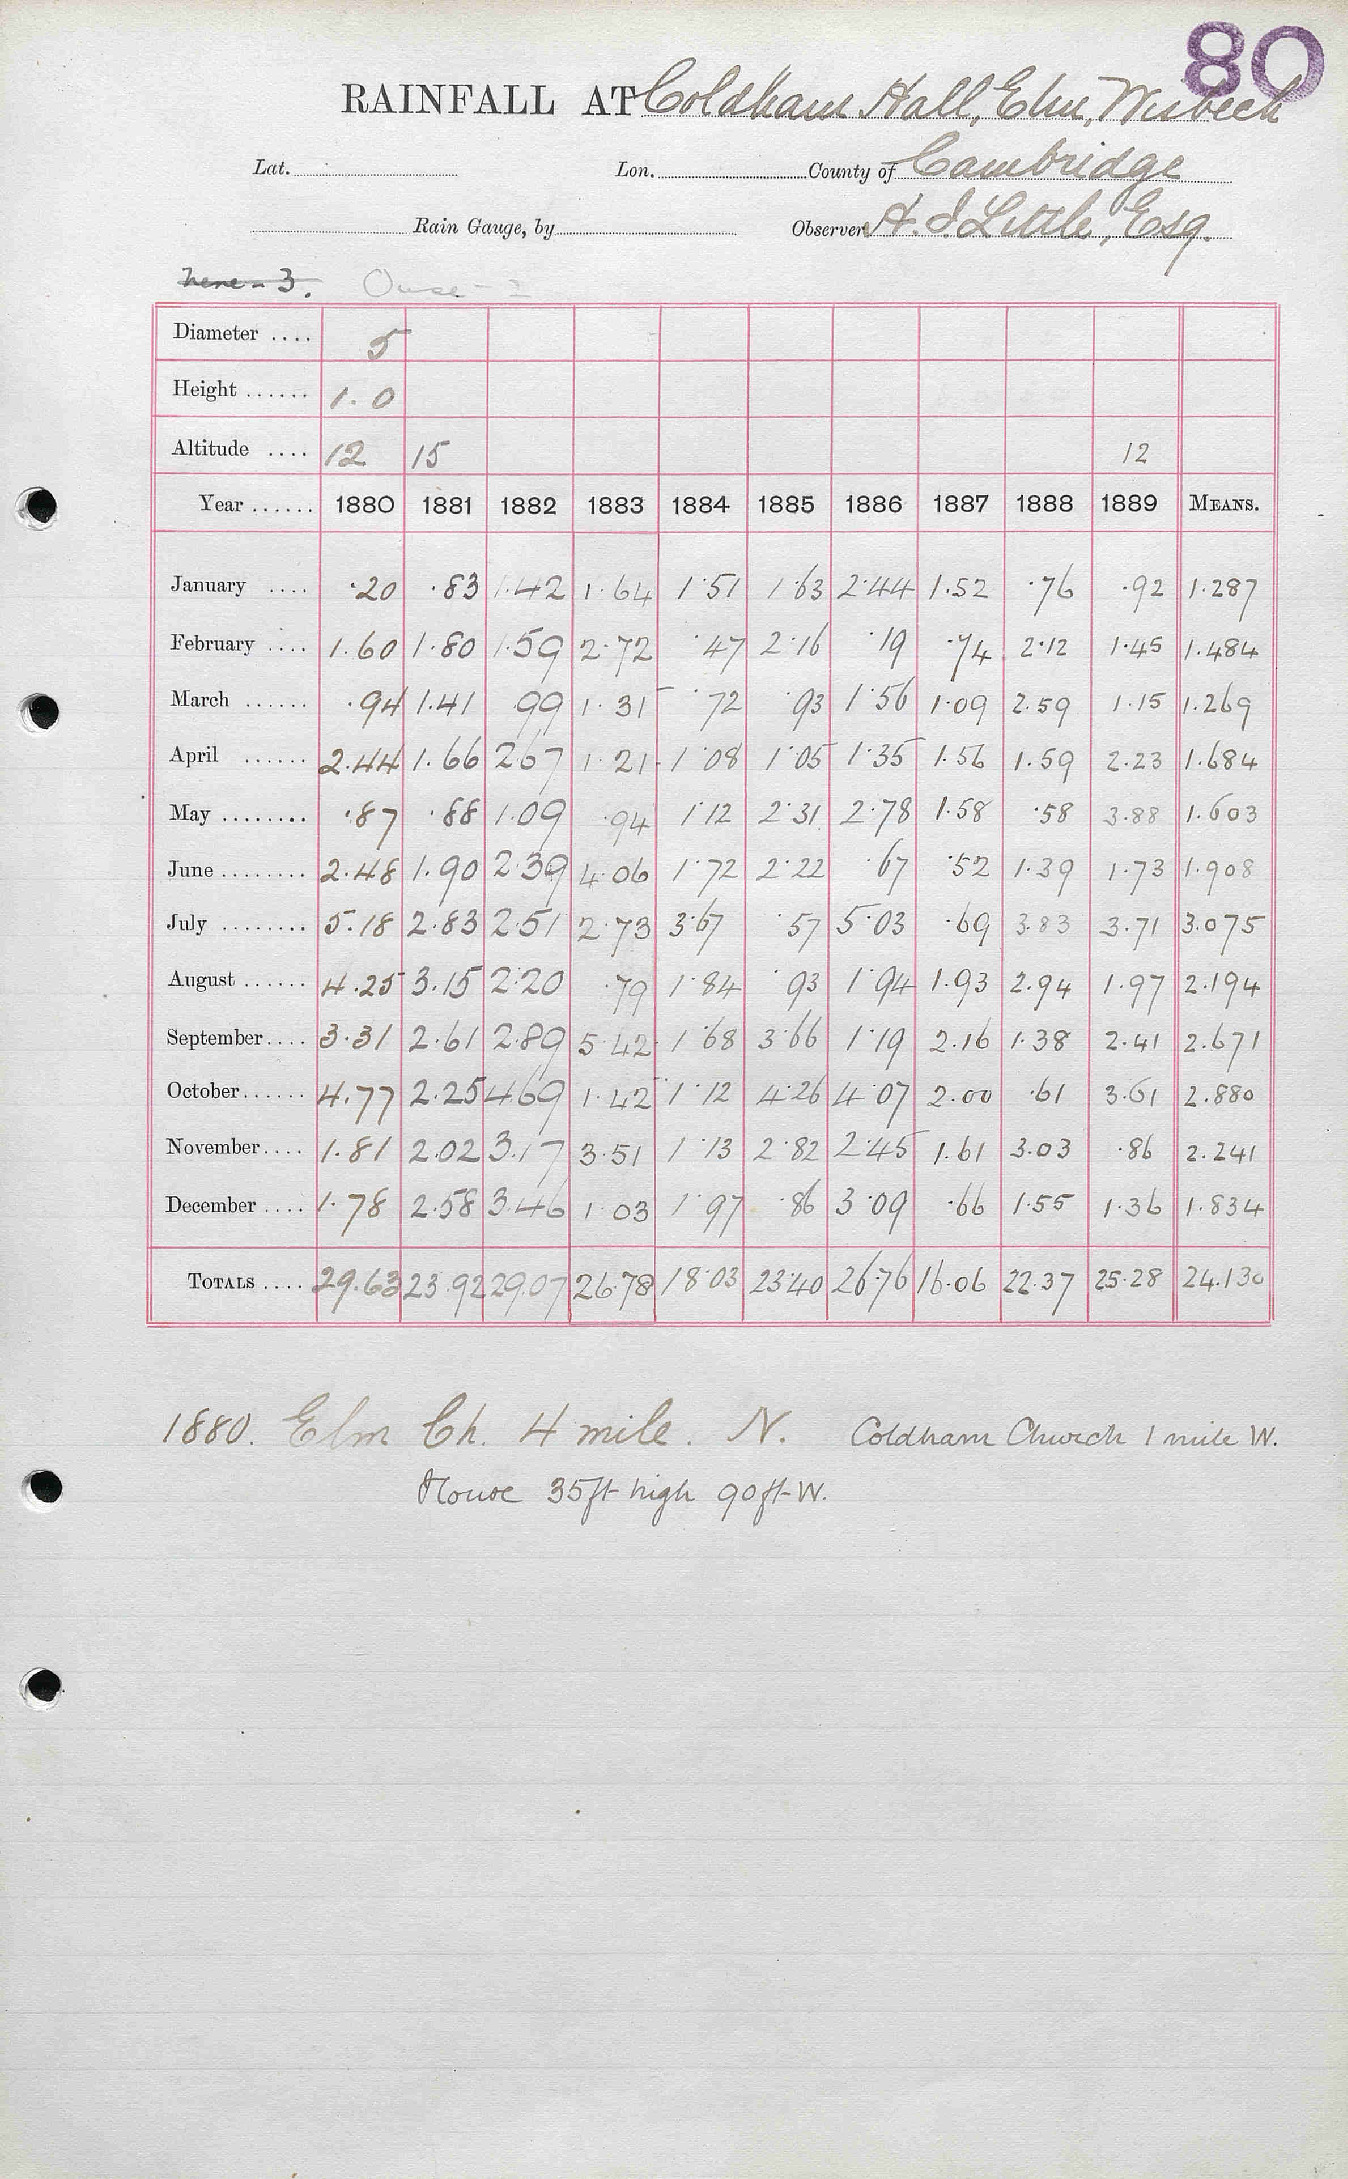 80
RAINFALL AT Coldham Hall, Elm, Wisbech
Lat. Lon. County of Cambridge
Rain Gauge, by Observer H. J. Little, Esq.
Nene - 3. Ouse -
Diameter .... 5
Height ...... 1.0
Altitude .... 12 15 12
Year ...... 1880 1881 1882 1883 1884 1885 1886 1887 1888 1889 MEANS.
January .... .20 .83 1.42 1.64 1.51 1.63 2.44 1.52 .76 .92 1.287
February .... 1.60 1.80 1.59 2.72 .47 2.16 .19 .74 2.12 1.45 1.484
March ...... .94 1.41 .99 1.31 .72 .93 1.56 1.09 2.59 1.15 1.269
April ...... 2.44 1.66 2.67 1.21 1.08 1.05 1.35 1.56 1.59 2.23 1.684
May ........ .87 .88 1.09 .94 1.12 2.31 2.78 1.58 .58 3.88 1.603
June ........ 2.48 1.90 2.39 4.06 1.72 2.22 .67 .52 1.39 1.73 1.908
July ........ 5.18 2.83 2.51 2.73 3.67 .57 5.03 .69 3.83 3.71 3.075
August ...... 4.25 3.15 2.20 .79 1.84 .93 1.94 1.93 2.94 1.97 2.194
September.... 3.31 2.61 2.89 5.42 1.68 3.66 1.19 2.16 1.38 2.41 2.671
October...... 4.77 2.25 4.69 1.42 1.12 4.26 4.07 2.00 .61 3.61 2.880
November.... 1.81 2.02 3.17 3.51 1.13 2.82 2.45 1.61 3.03 .86 2.241
December .... 1.78 2.58 3.46 1.03 1.97 .86 3.09 .66 1.55 1.36 1.834
TOTALS .... 29.63 23.92 29.07 26.78 18.03 23.40 26.76 16.06 22.37 25.28 24.130
1880. Elm Ch. 4 mile. N. Coldham Church 1 mile W.
House 35ft high 90ft W.